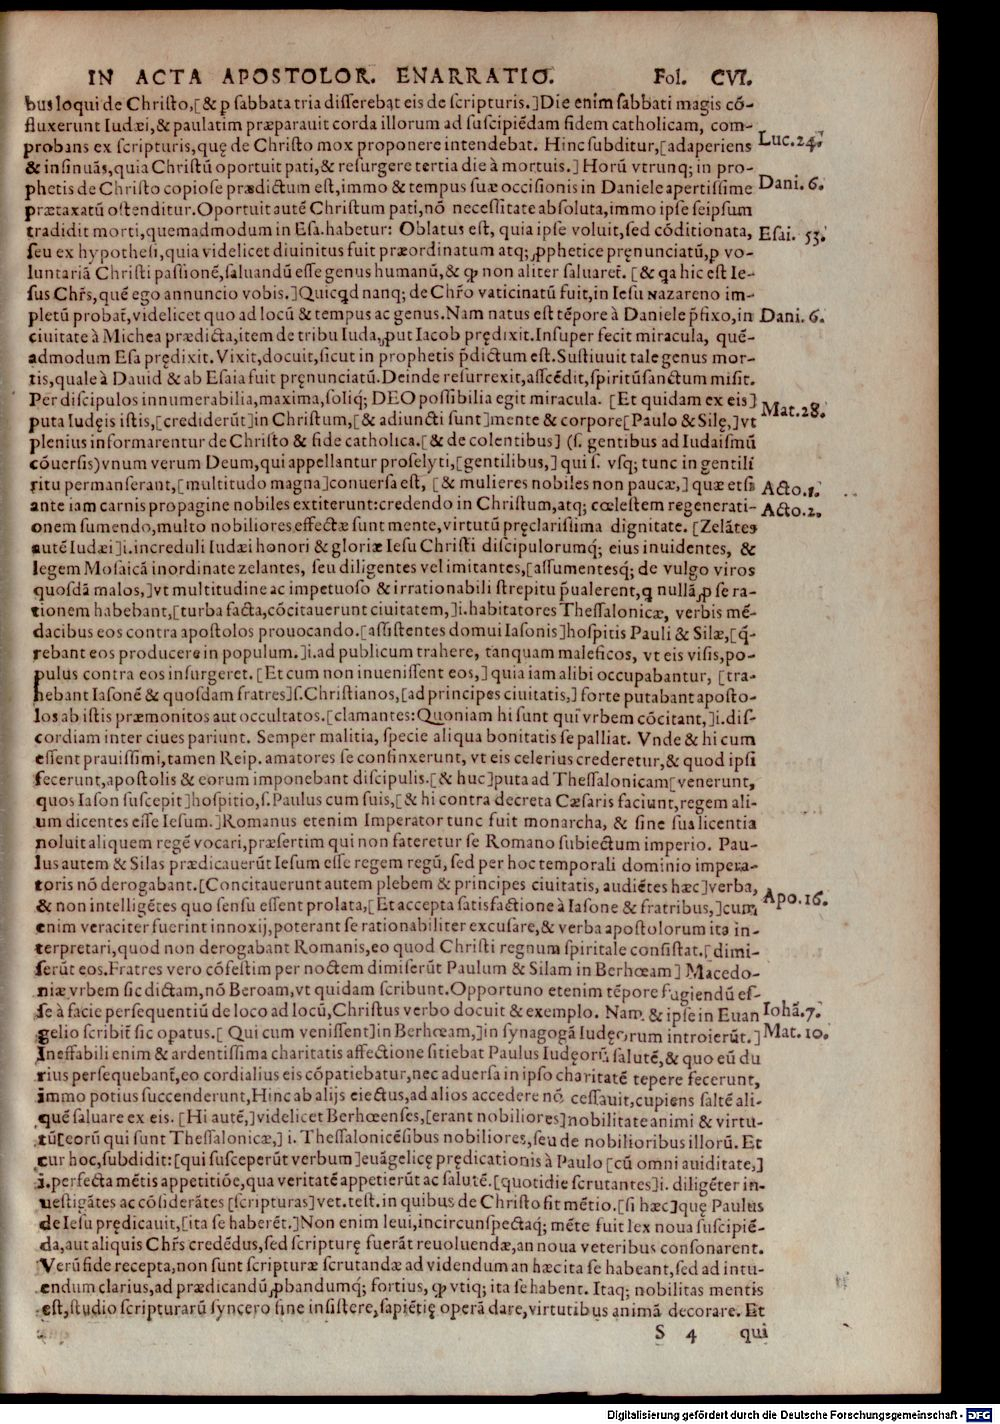 IN ACTA APOSTOLOR. ENARRATIO. Fol. CVI.
bus loqui de Christo,[& ꝑ sabbata tria disserebat eis de scripturis.]Die enim sabbati magis cō-
fluxerunt Iudæi,& paulatim præparauit corda illorum ad suscipiēdam fidem catholicam, com-
probans ex scripturis,quę de Christo mox proponere intendebat. Hinc subditur,[adaperiens
& insinuās,quia Christū oportuit pati,& resurgere tertia die à mortuis.] Horū vtrunq; in pro-
phetis de Christo copiose prædictum est,immo & tempus suæ occisionis in Daniele apertissime
prætaxatū ostenditur.Oportuit autē Christum pati,nō necessitate absoluta,immo ipse seipsum
tradidit morti,quemadmodum in Esa.habetur: Oblatus est, quia ipse voluit,sed cōditionata,
seu ex hypothesi,quia videlicet diuinitus fuit præordinatum atq; ꝓphetice pręnunciatū,ꝑ vo-
luntariā Christi passionē,saluandū esse genus humanū,& ꝙ non aliter saluaret̃. [& qa hic est Ie-
sus Chr̃s,quē ego annuncio vobis.]Quicqd nanq; de Chr̃o vaticinatū fuit,in Iesu Nazareno im-
pletū probat̃,videlicet quo ad locū & tempus ac genus.Nam natus est tēpore à Daniele p̄fixo,in
ciuitate à Michea prædicta,item de tribu Iuda,put Iacob prędixit.Insuper fecit miracula, quē-
admodum Esa prędixit.Vixit,docuit,sicut in prophetis p̄dictum est.Sustinuit tale genus mor-
tis,quale à Dauid & ab Esaia fuit pręnunciatū.Deinde resurrexit,asscēdit,spiritūsanctum misit.
Per discipulos innumerabilia,maxima,soliq; DEO possibilia egit miracula. [Et quidam ex eis]
puta Iudęis istis,[crediderūt]in Christum,[& adiuncti sunt]mente & corpore[Paulo & Silę,]vt
plenius informarentur de Christo & fide catholica.[& de colentibus] (s. gentibus ad Iudaismū
cōuersis)vnum verum Deum,qui appellantur proselyti,[gentilibus,] qui s. vsq; tunc in gentili
ritu permanserant,[multitudo magna]conuersa est, [& mulieres nobiles non paucæ,] quæ etsi
ante iam carnis propagine nobiles extiterunt:credendo in Christum,atq; cœlestem regenerati-
onem sumendo,multo nobiliores effectæ sunt mente,virtutū pręclarissima dignitate. [Zelātes
autē Iudæi]i.increduli Iudæi honori & gloriæ Iesu Christi discipulorumq́; eius inuidentes, &
legem Mosaicā inordinate zelantes, seu diligentes vel imitantes,[assumentesq́; de vulgo viros
quosdā malos,]vt multitudine ac impetuoso & irrationabili strepitu p̄ualerent,q nullā ꝓ se ra-
tionem habebant,[turba facta,cōcitauerunt ciuitatem,]i.habitatores Thessalonicæ, verbis mē-
dacibus eos contra apostolos prouocando.[assistentes domui Iasonis]hospitis Pauli & Silæ,[q̄-
rebant eos producere in populum.]i.ad publicum trahere, tanquam maleficos, vt eis visis,po-
pulus contra eos insurgeret. [Et cum non inuenissent eos,] quia iam alibi occupabantur, [tra-
hebant Iasonē & quosdam fratres]s.Christianos,[ad principes ciuitatis,] forte putabant aposto-
los ab istis præmonitos aut occultatos.[clamantes:Quoniam hi sunt qui vrbem cōcitant,]i.dis-
cordiam inter ciues pariunt. Semper malitia, specie aliqua bonitatis se palliat. Vnde & hi cum
essent prauissimi,tamen Reip. amatores se confinxerunt, vt eis celerius crederetur,& quod ipsi
fecerunt,apostolis & eorum imponebant discipulis.[& huc]puta ad Thessalonicam[venerunt,
quos Iason suscepit]hospitio,s.Paulus cum suis,[& hi contra decreta Cæsaris faciunt,regem ali-
um dicentes esse Iesum.]Romanus etenim Imperator tunc fuit monarcha, & sine sua licentia
noluit aliquem regē vocari,præsertim qui non fateretur se Romano subiectum imperio. Pau-
lus autem & Silas prædicauerūt Iesum esse regem regū, sed per hoc temporali dominio impera-
toris nō derogabant.[Concitauerunt autem plebem & principes ciuitatis, audiētes hæc]verba,
& non intelligētes quo sensu essent prolata,[Et accepta satisfactione à Iasone & fratribus,]cum
enim veraciter fuerint innoxij,poterant se rationabiliter excusare,& verba apostolorum ita in-
terpretari,quod non derogabant Romanis,eo quod Christi regnum spiritale consistat.[dimi-
serūt eos.Fratres vero cōfestim per noctem dimiserūt Paulum & Silam in Berhœam] Macedo-
niæ vrbem sic dictam,nō Beroam,vt quidam scribunt.Opportuno etenim tēpore fugiendū es-
se à facie persequentiū de loco ad locū,Christus verbo docuit & exemplo. Nam & ipse in Euan
gelio scribit̃ sic opatus.[ Qui cum venissent]in Berhœam,]in synagogā Iudęorum introierūt.]
Ineffabili enim & ardentissima charitatis affectione sitiebat Paulus Iudęorū salutē,& quo eū du
rius persequebant̃,eo cordialius eis cōpatiebatur,nec aduersa in ipso charitatē tepere fecerunt,
immo potius succenderunt,Hinc ab alijs eiectus,ad alios accedere nō cessauit,cupiens saltē ali-
quē saluare ex eis. [Hi autē,]videlicet Berhœenses,[erant nobiliores]nobilitate animi & virtu-
tū[eorū qui sunt Thessalonicæ,] i. Thessalonicēsibus nobiliores,seu de nobilioribus illorū. Et
cur hoc,subdidit:[qui susceperūt verbum]euāgelicę prędicationis à Paulo [cū omni auiditate,]
i.perfecta mētis appetitiōe,qua veritatē appetierūt ac salutē.[quotidie scrutantes]i. diligēter in-
uestigātes ac cōsiderātes [scripturas]vet.test.in quibus de Christo fit mētio.[si hæc]quę Paulus
de Iesu prędicauit,[ita se haberēt.]Non enim leui,incircunspectaq́; mēte fuit lex noua suscipiē-
da,aut aliquis Chr̃s credēdus,sed scripturę fuerāt reuoluendæ,an noua veteribus consonarent.
Verū fide recepta,non sunt scripturæ scrutandæ ad videndum an hæc ita se habeant,sed ad intu-
endum clarius,ad prædicandū ꝓbandumq́; fortius, ꝙ vtiq; ita se habent. Itaq; nobilitas mentis
est,studio scripturarū syncero sine insistere,sapiētię operā dare,virtutibus animā decorare. Et
S 4 qui
Luc.24.
Dani. 6.
Esai. 53.
Dani. 6.
Mat.28.
Acto.1.
Acto.2.
Apo.16.
Iohā.7.
Mat. 10.
Digitalisierung gefördert durch die Deutsche Forschungsgemeinschaft - DFG